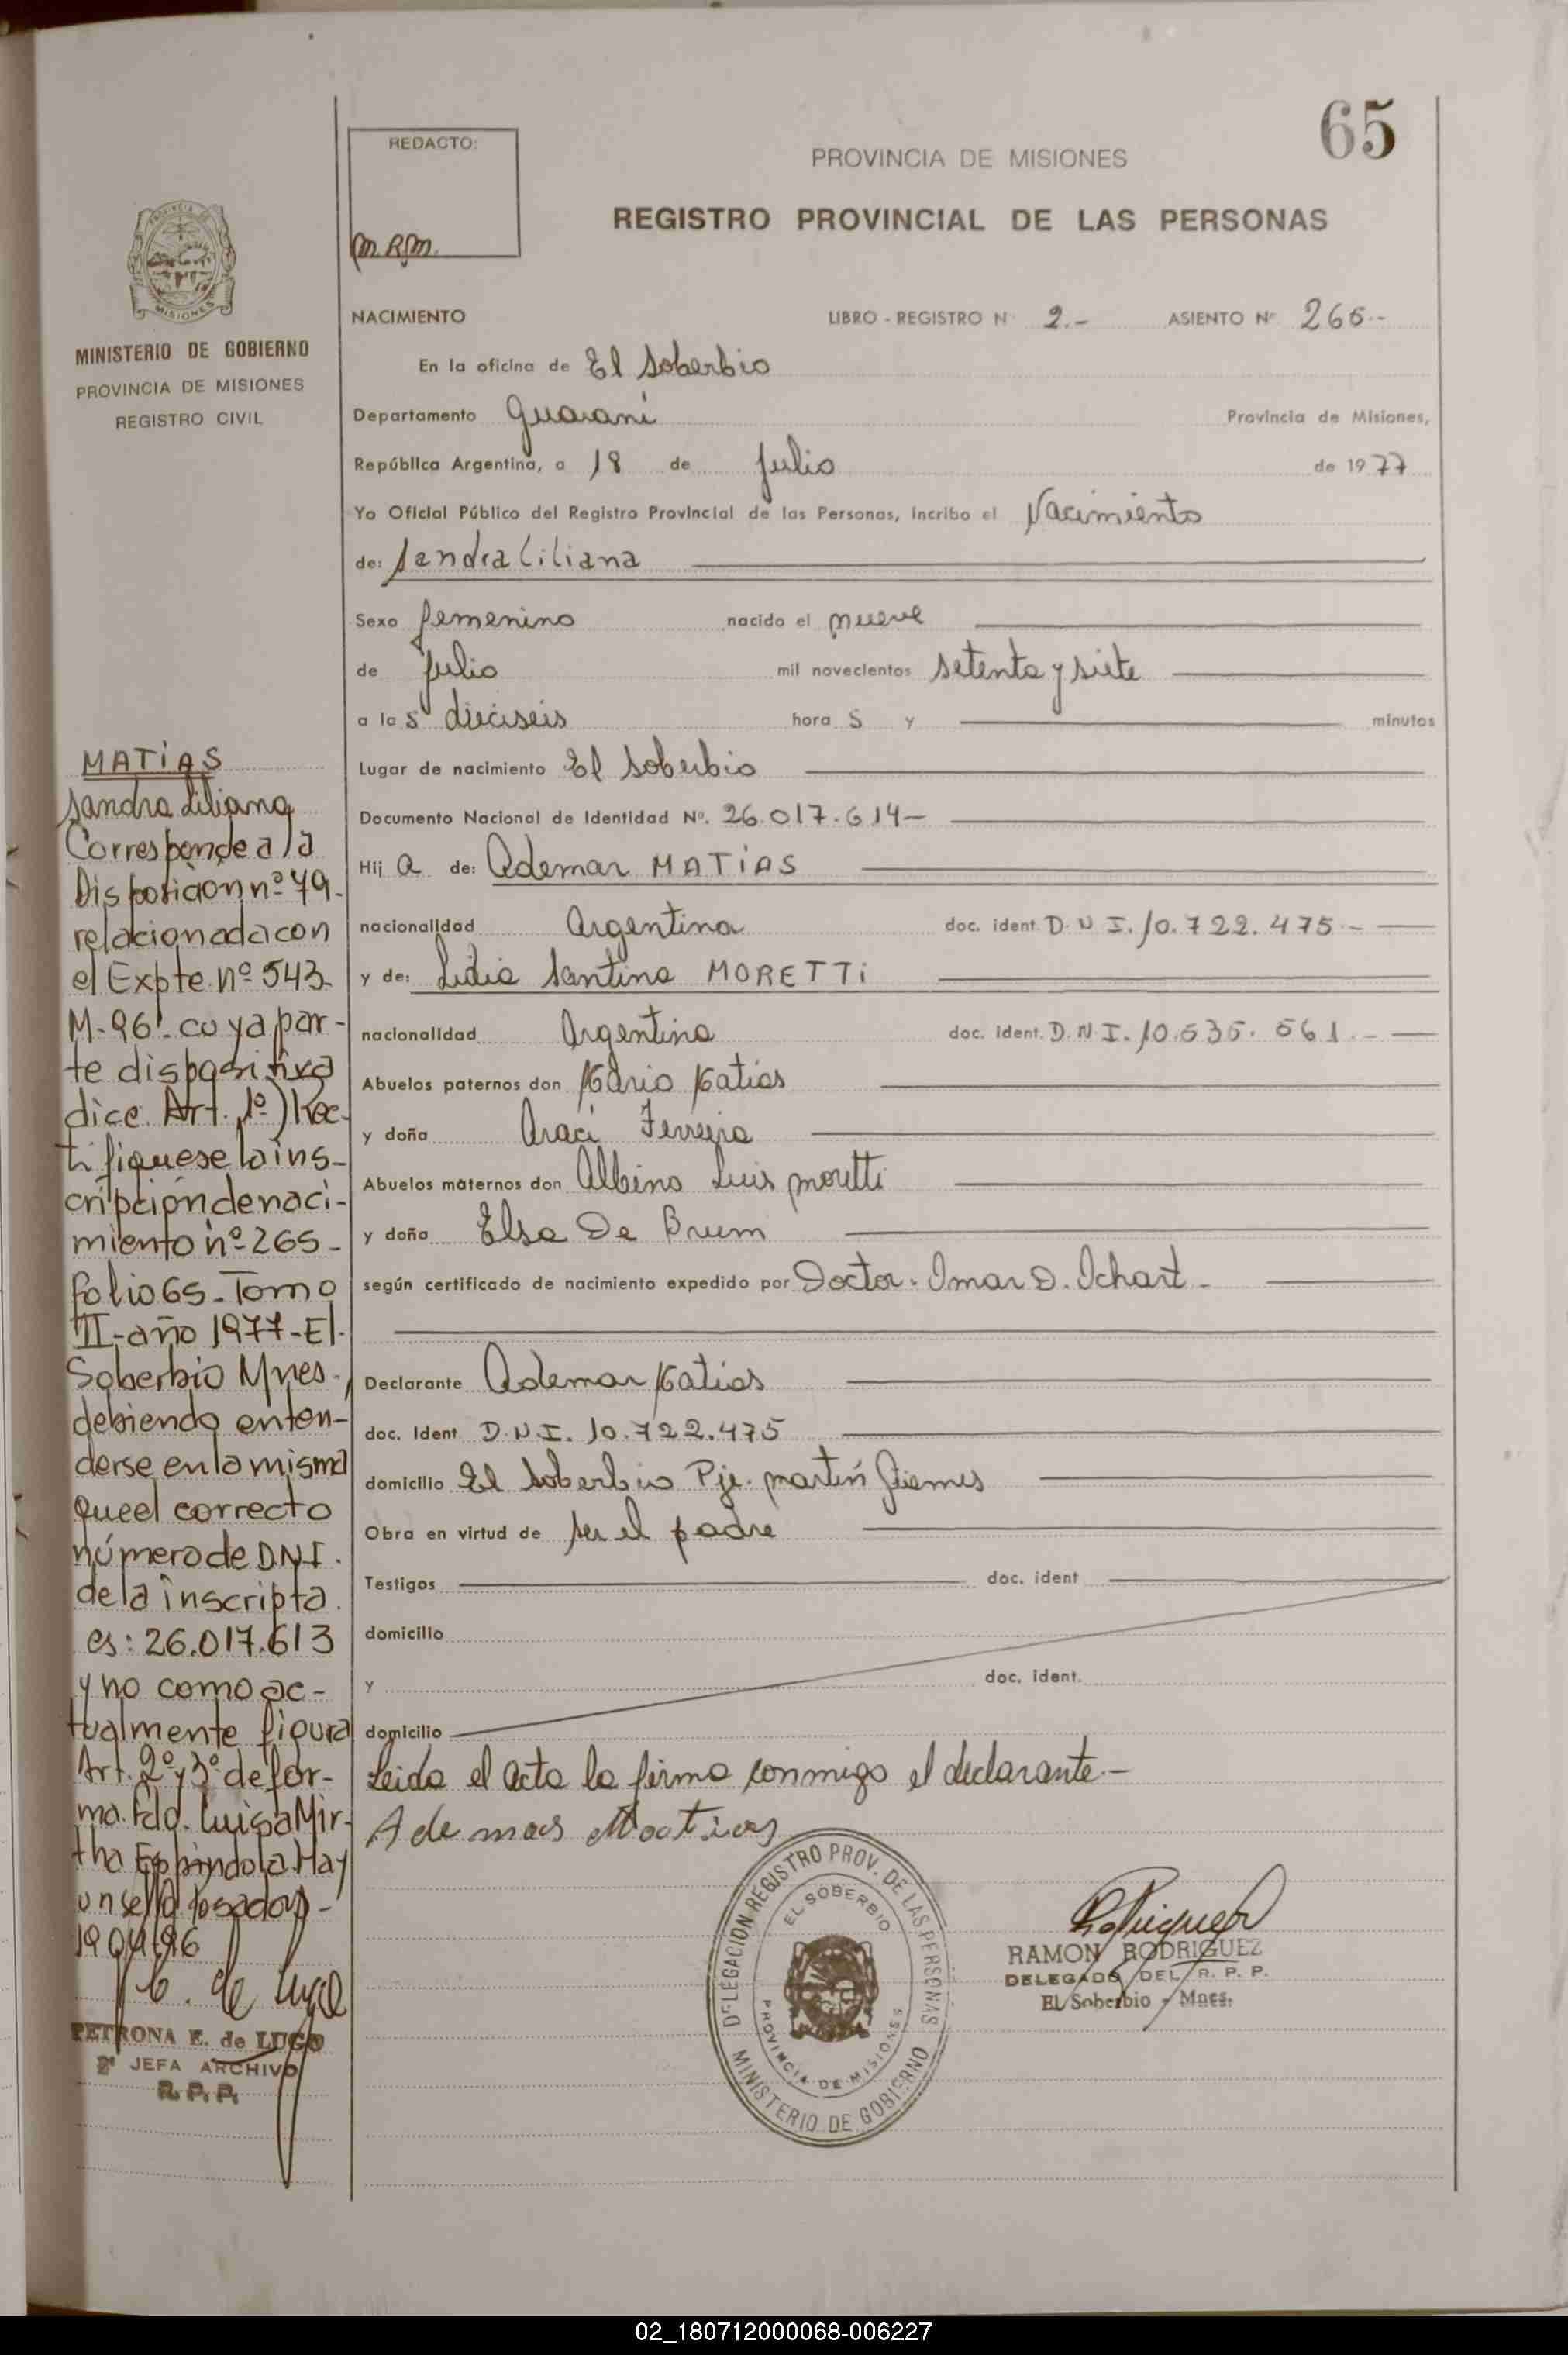 65
REDACTO:
M.R.M.
PROVINCIA DE MISIONES
REGISTRO PROVINCIAL DE LAS PERSONAS
PROVINCIA DE
MISIONES
MINISTERIO DE GOBIERNO
PROVINCIA DE MISIONES
REGISTRO CIVIL
NACIMIENTO LIBRO - REGISTRO Nº 2.- ASIENTO Nº 265.-
En la oficina de El Soberbio
Departamento Guaraní Provincia de Misiones,
República Argentina, a 18 de Julio de 1977
Yo Oficial Público del Registro Provincial de las Personas, incribo el Nacimiento
de: Sandra Liliana
Sexo femenino nacido el nueve
de Julio mil novecientos setenta y siete
a las dieciseis horas y minutos
Lugar de nacimiento El Soberbio
Documento Nacional de Identidad Nº. 26.017.614-
Hija de: Ademar MATIAS
nacionalidad Argentina doc. ident. D.N.I. 10.722.475.-
y de: Lidia Santina MORETTI
nacionalidad Argentina doc. ident. D.N.I. 10.535.561.-
Abuelos paternos don Mario Matias
y doña Araci Ferreira
Abuelos maternos don Albino Luis Moretti
y doña Elsa De Brum
según certificado de nacimiento expedido por Doctor. Omar D. Ichart.-
Declarante Ademar Matias
doc. Ident D.N.I. 10.722.475
domicilio El Soberbio Pje. Martín Güemes
Obra en virtud de ser el padre
Testigos doc. ident
domicilio
y doc. ident.
domicilio
Leida el acta la firma conmigo el declarante.-
Ademar Matias
DELEGACION REGISTRO PROV. DE LAS PERSONAS
EL SOBERBIO
PROVINCIA DE MISIONES
MINISTERIO DE GOBIERNO
RAMON RODRIGUEZ
DELEGADO DEL R. P. P.
El Soberbio - Mnes.
MATIAS
Sandra Liliana
Corresponde a la
Disposición nº 79.
relacionada con
el Expte. nº 543-
M-96'- cuya par-
te dispositiva
dice: Art. 1º) Rec-
tifiquese la ins-
cripción de naci-
miento nº 265-
folio 65-Tomo
II-año 1977-El
Soberbio Mnes.,
debiendo enten-
derse en la misma
que el correcto
número de D.N.I.
de la inscripta
es: 26.017.613
y no como ac-
tualmente figura
Art. 2º y 3º de for-
ma. Fdo. Luisa Mir-
tha Espindola. Hay
un sello Posadas-
19 04 96
PETRONA E. de LUGO
2ª JEFA ARCHIVO
R. P. P.
02_180712000068-006227